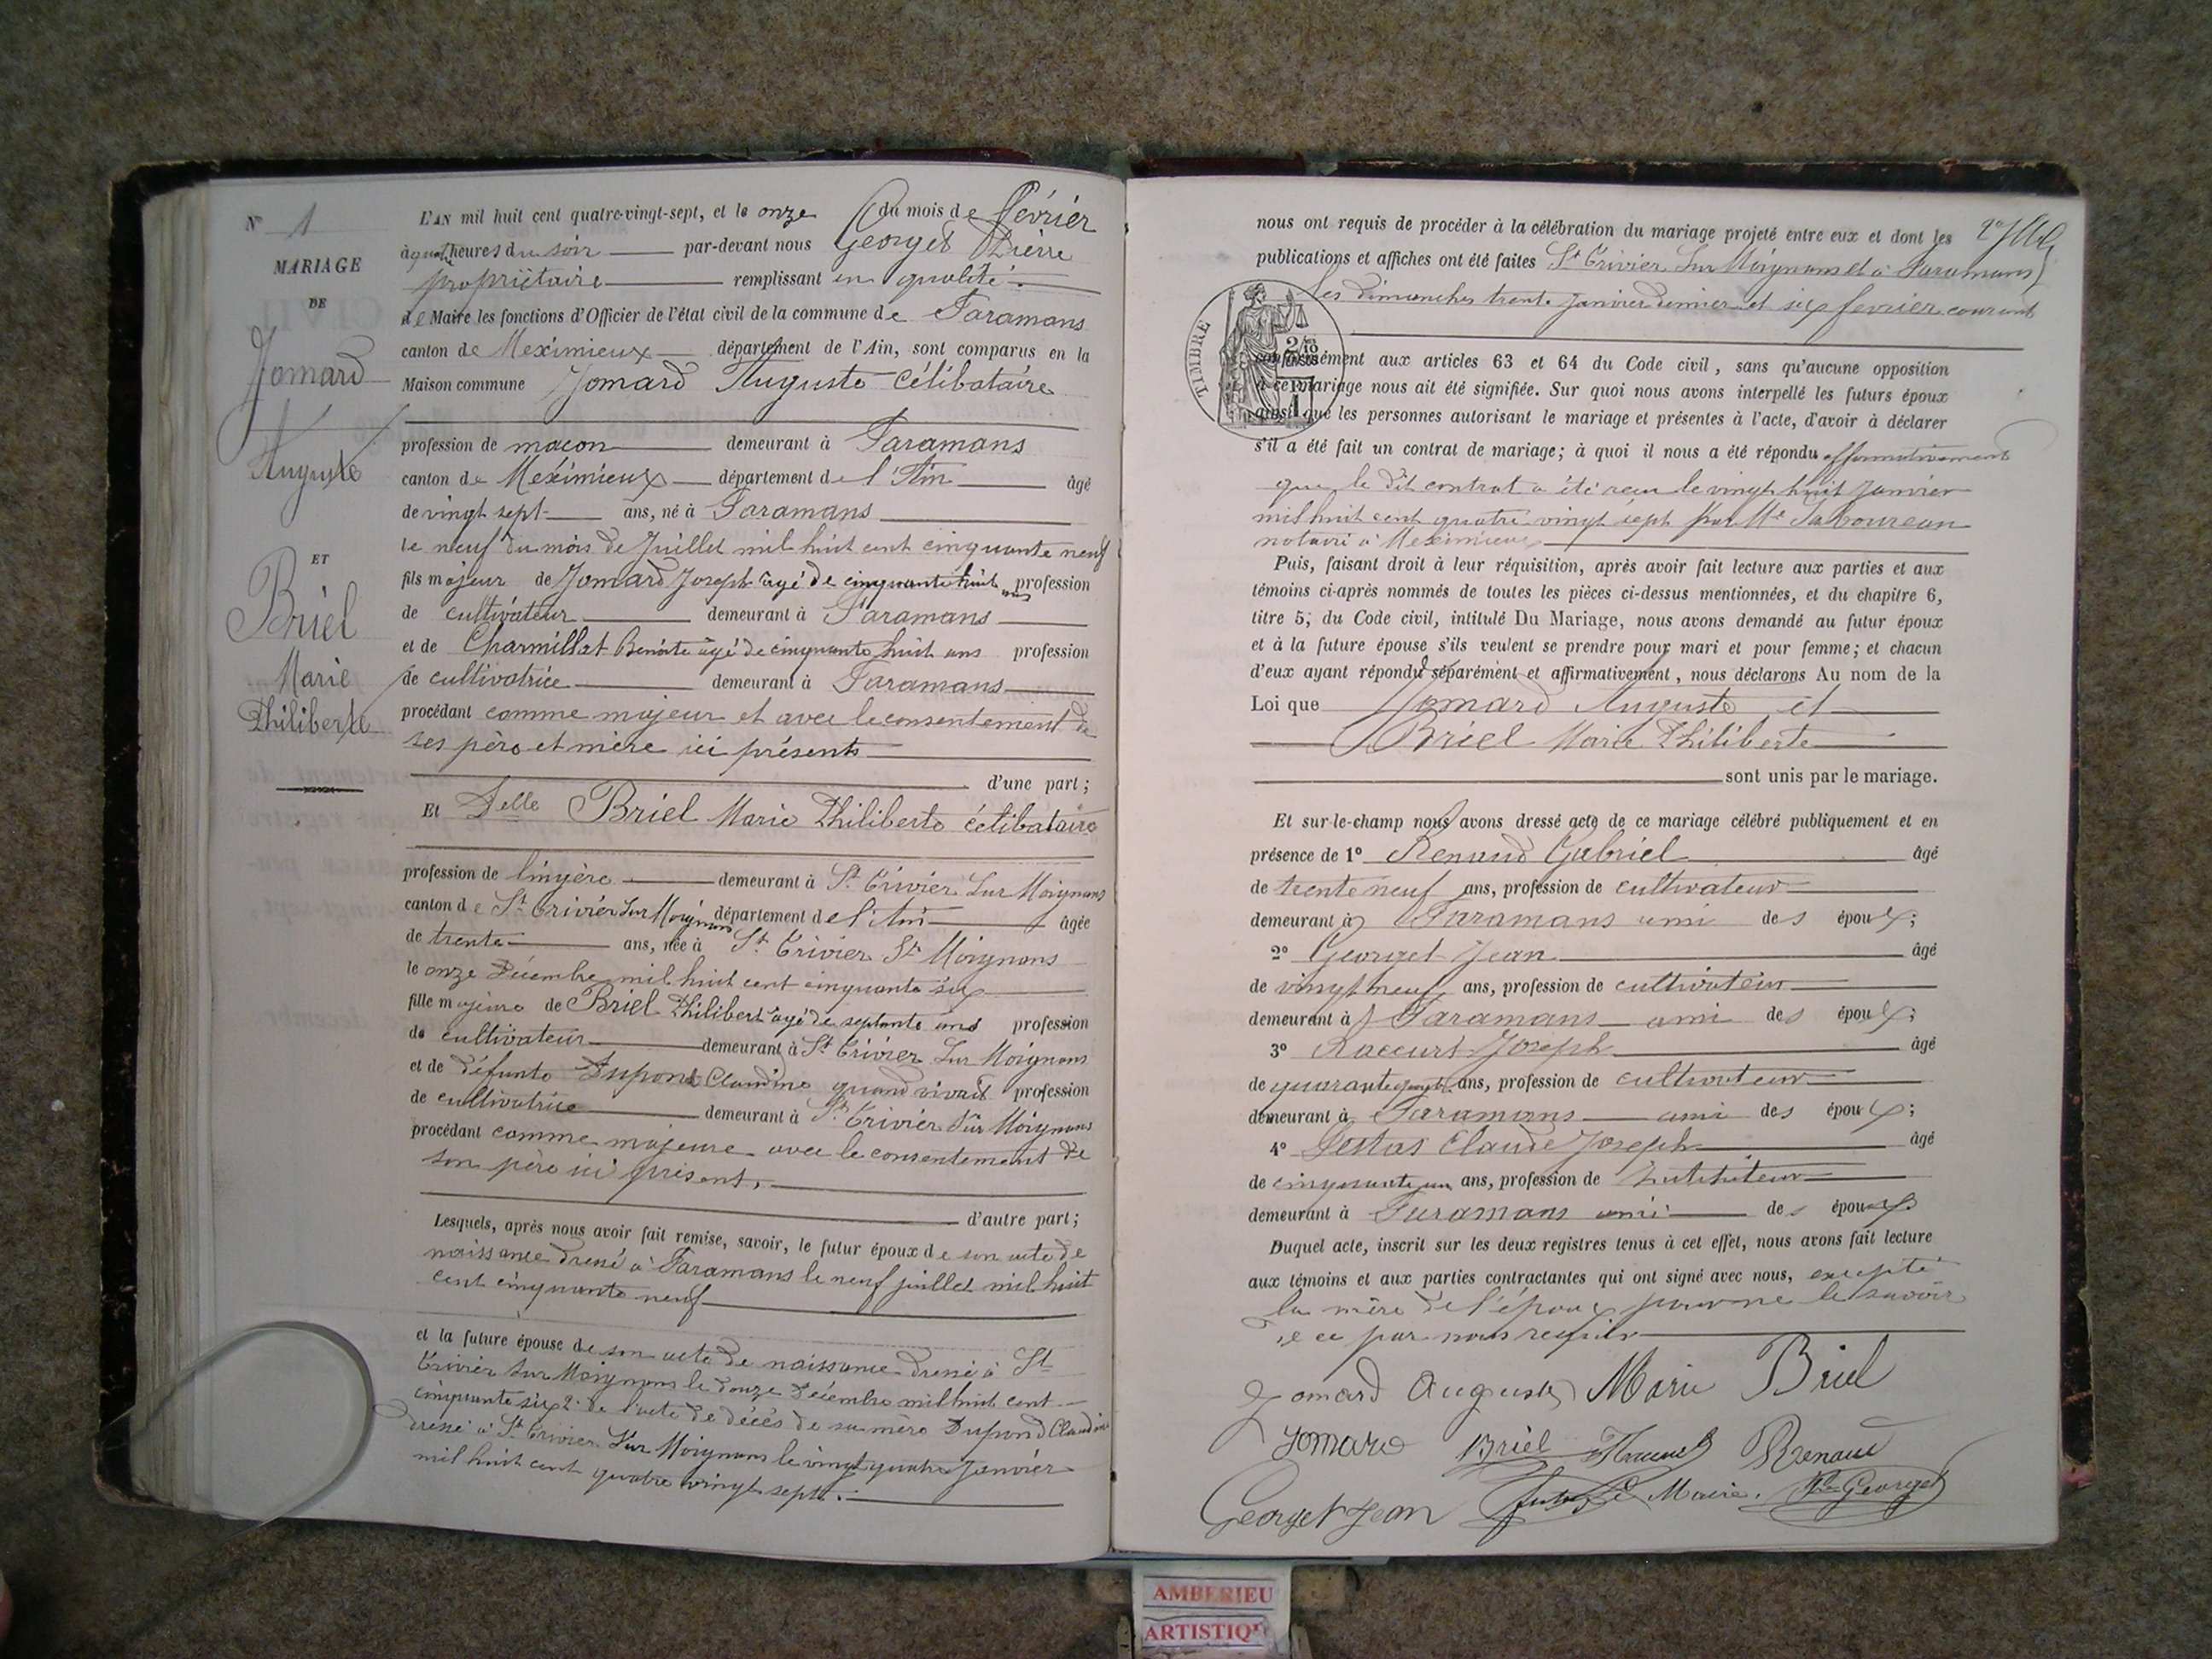 N° 1
MARIAGE
DE
Jomard
Auguste
ET
Briel
Marie
Philiberte
L'AN mil huit cent quatre-vingt-sept, et le onze du mois de février
à quatre heures du soir par-devant nous Georget Pierre
propriétaire remplissant en qualité
de Maire les fonctions d'Officier de l'état civil de la commune de Faramans
canton de Meximieux département de l'Ain, sont comparus en la
Maison commune Jomard Auguste célibataire
profession de maçon demeurant à Faramans
canton de Meximieux département de l'Ain âgé
de vingt sept ans, né à Faramans
le neuf du mois de Juillet mil huit cent cinquante neuf
fils majeur de Jomard Joseph âgé de cinquante huit ans profession
de cultivateur demeurant à Faramans
et de Charmillat Benoite âgé de cinquante huit ans profession
de cultivatrice demeurant à Faramans
procédant comme majeur et avec le consentement de
ses père et mère ici présents
d'une part;
Et Delle Briel Marie Philiberte célibataire
profession de lingère demeurant à St Trivier Sur Moignans
canton de St Trivier Sur Moignans département de l'Ain âgée
de trente ans, née à St Trivier St Moignans
le onze Décembre mil huit cent cinquante six
fille majeure de Briel Philibert âgé de septante ans profession
de cultivateur demeurant à St Trivier Sur Moignans
et de défunte Dupond Claudine quand vivait profession
de cultivatrice demeurant à St Trivier Sur Moignans
procédant comme majeure avec le consentement de
son père ici présent.
d'autre part;
Lesquels, après nous avoir fait remise, savoir, le futur époux de son acte de
naissance dressé à Faramans le neuf juillet mil huit
cent cinquante neuf
et la future épouse de son acte de naissance dressé à St
Trivier Sur Moignans le douze Décembre mil huit cent
cinquante six 2° de l'acte de décès de sa mère Dupond Claudine
dressé à St Trivier Sur Moignans le vingt quatre Janvier
mil huit cent quatre vingt sept.
nous ont requis de procéder à la célébration du mariage projeté entre eux et dont les
publications et affiches ont été faites St Trivier Sur Moignans et à Faramans
les dimanches trente Janvier dernier et six fevrier courant
TIMBRE
2/10
EN SUS
1
conformément aux articles 63 et 64 du Code civil, sans qu'aucune opposition
à ce mariage nous ait été signifiée. Sur quoi nous avons interpellé les futurs époux
ainsi que les personnes autorisant le mariage et présentes à l'acte, d'avoir à déclarer
s'il a été fait un contrat de mariage; à quoi il nous a été répondu affirmativement
que le dit contrat a été reçu le vingt huit Janvier
mil huit cent quatre vingt sept par Me Taboureau
notaire à Meximieux
Puis, faisant droit à leur réquisition, après avoir fait lecture aux parties et aux
témoins ci-après nommés de toutes les pièces ci-dessus mentionnées, et du chapitre 6,
titre 5, du Code civil, intitulé Du Mariage, nous avons demandé au futur époux
et à la future épouse s'ils veulent se prendre pour mari et pour femme; et chacun
d'eux ayant répondu séparément et affirmativement, nous déclarons Au nom de la
Loi que Jomard Auguste et
Briel Marie Philiberte
sont unis par le mariage.
Et sur-le-champ nous avons dressé acte de ce mariage célébré publiquement et en
présence de 1° Renaud Gabriel âgé
de trente neuf ans, profession de cultivateur
demeurant à Faramans ami des époux;
2° Georget Jean âgé
de vingt neuf ans, profession de cultivateur
demeurant à Faramans ami des époux;
3° Raccurt Joseph âgé
de quarante ans, profession de cultivateur
demeurant à Faramans ami des époux;
4° Claude Joseph âgé
de cinquante un ans, profession de Instituteur
demeurant à Faramans ami des époux
Duquel acte, inscrit sur les deux registres tenus à cet effet, nous avons fait lecture
aux témoins et aux parties contractantes qui ont signé avec nous, excepté
la mère de l'époux pour ne le savoir
de ce par nous requis
Jomard Auguste Marie Briel
Jomard Briel Renaud
Georget Jean Le Maire, Georget
AMBERIEU
ARTISTIQ